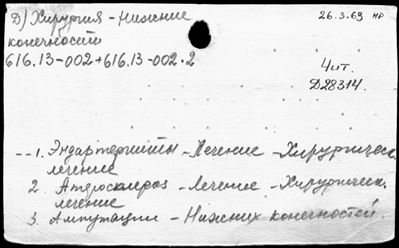 Д) Хирургия - Нижние
конечности
26.3.63 нр
616.13-002+616.13-002.2
Чит.
Д28314.
--1. Эндартерииты - Лечение - Хирургическ.
лечение
2. Атеросклероз - Лечение - Хирургическ.
лечение
3. Ампутации - Нижних конечностей.